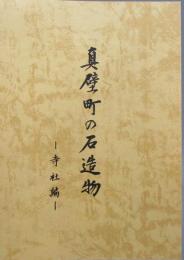 真壁町の石造物
－寺社編－